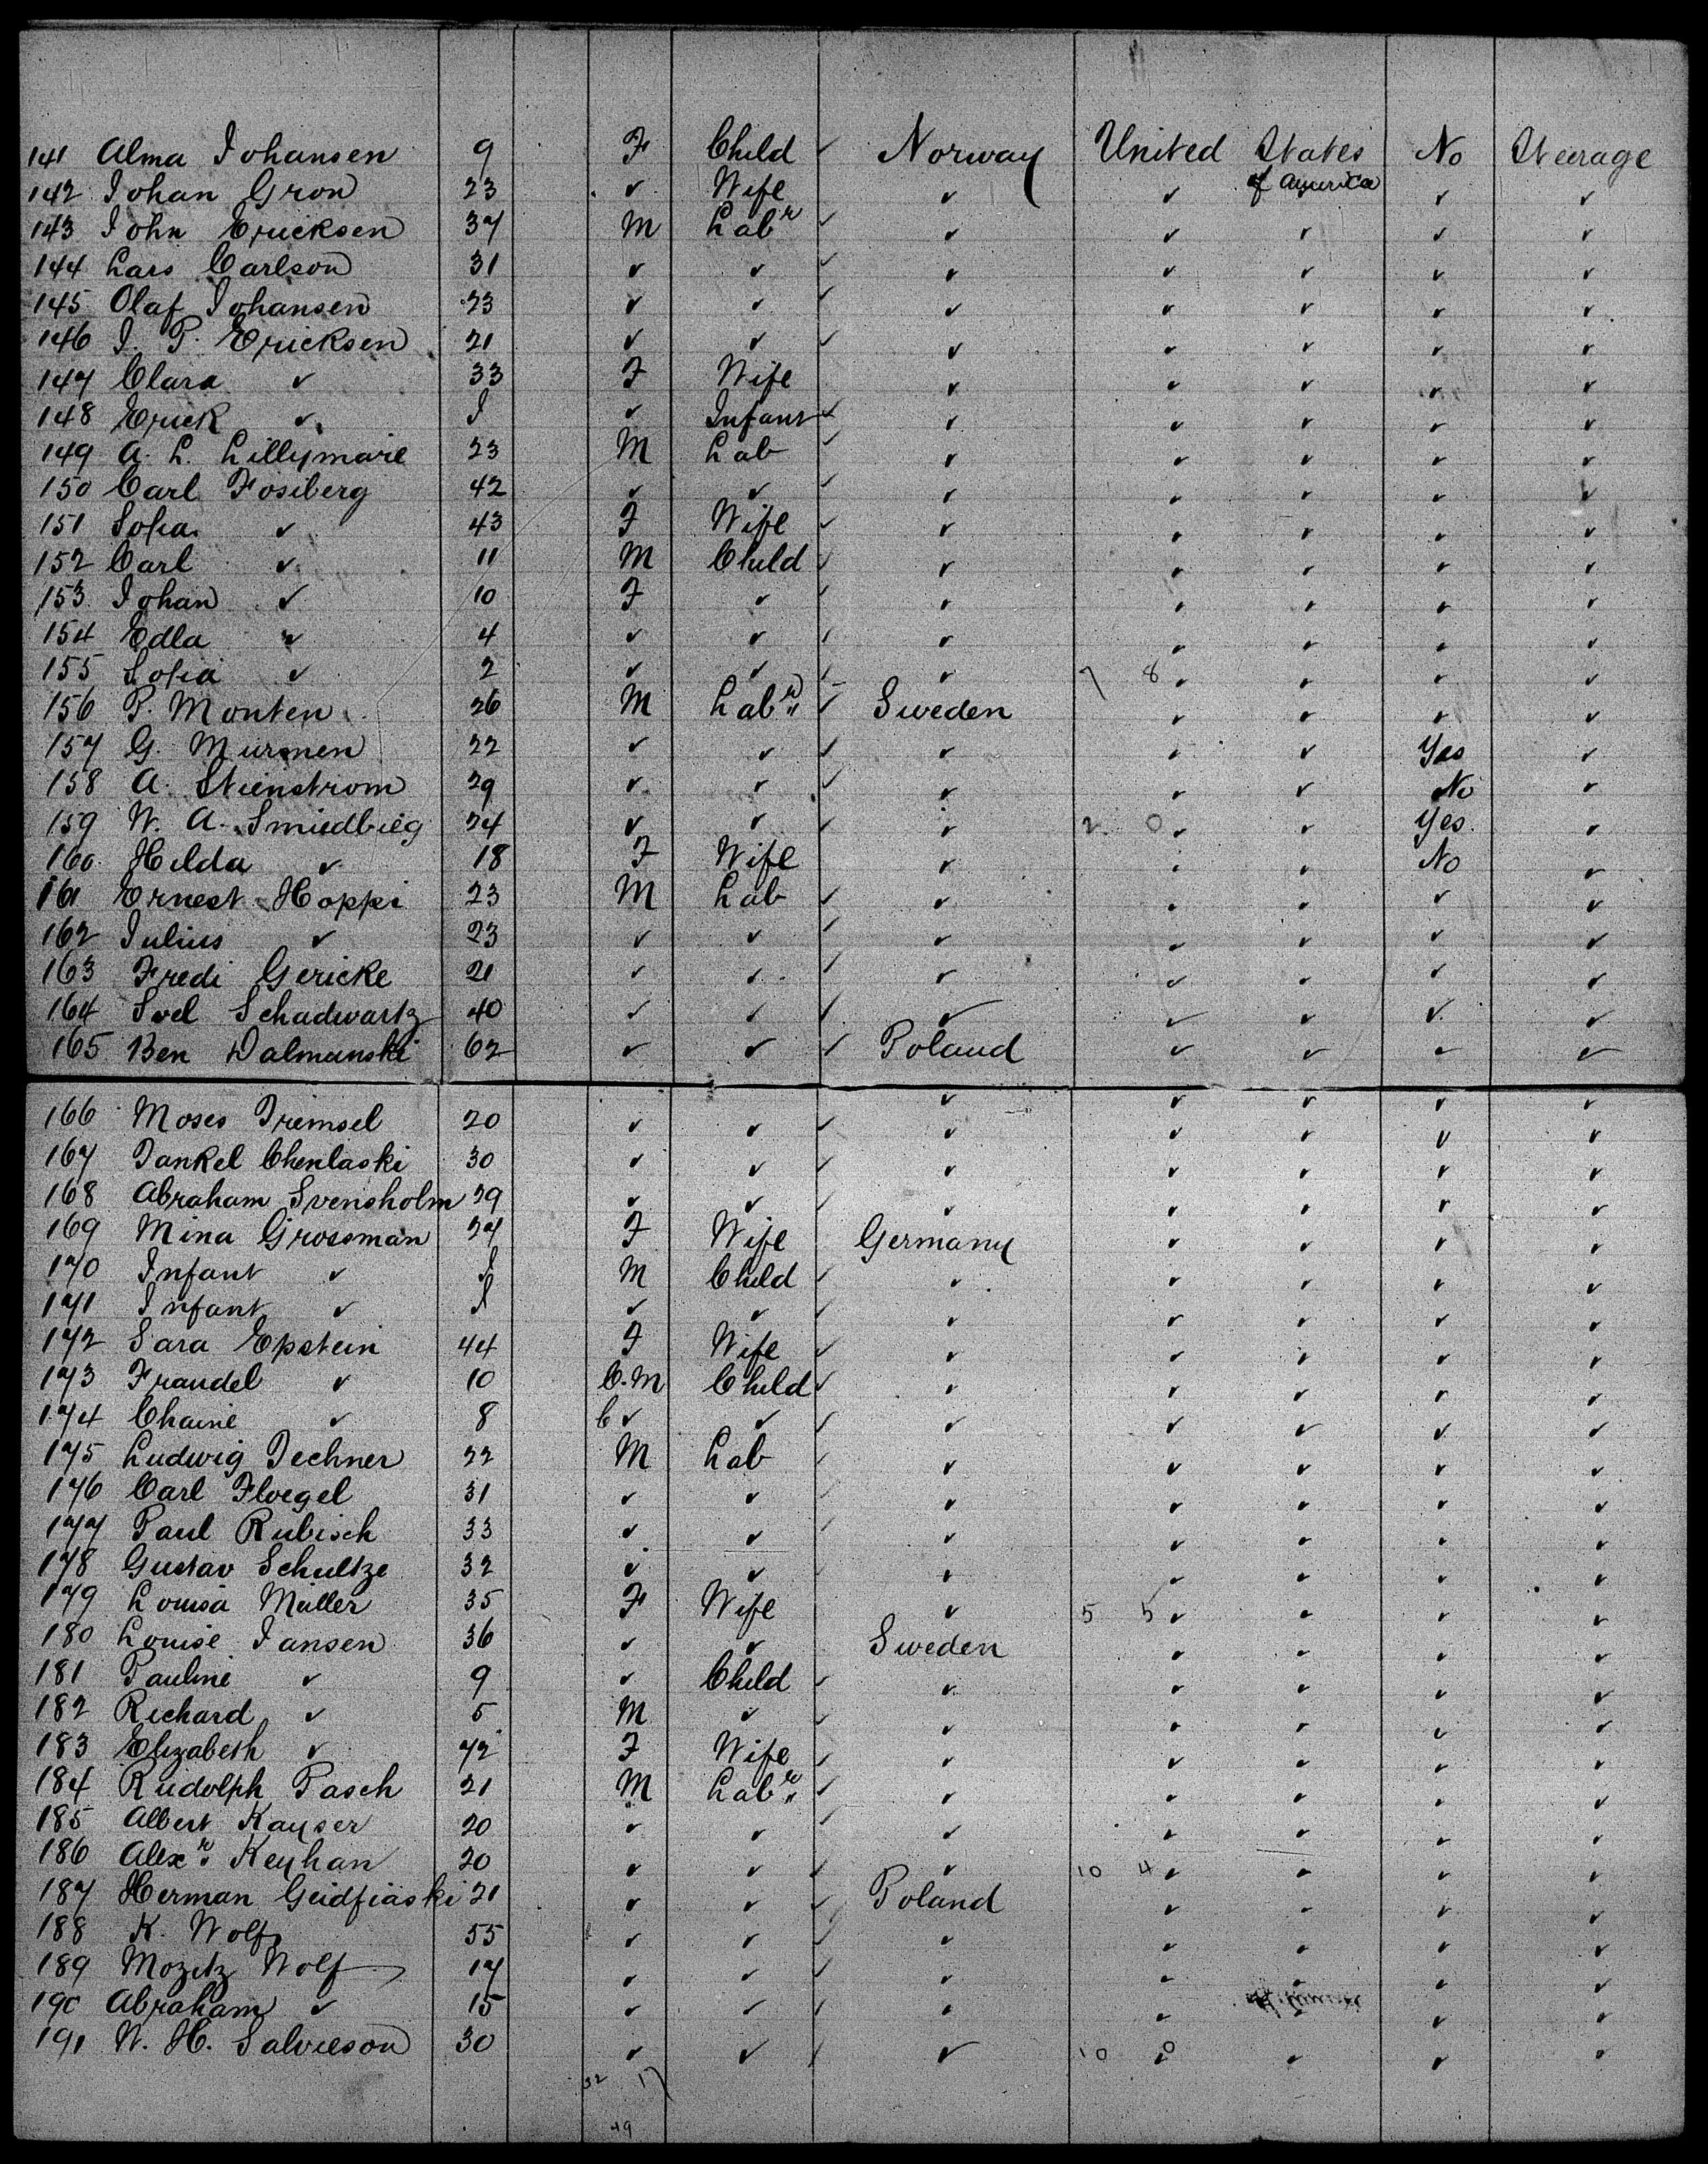 141 Alma Johansen 9 F Child ✓ Norway United States No Steerage
of America
142 Johan Gron 23 ✓ Wife ✓ ✓ ✓ ✓
143 John Ericksen 37 M Labr ✓ ✓ ✓ ✓ ✓ ✓
144 Lars Carlson 31 ✓ ✓ ✓ ✓ ✓ ✓ ✓ ✓
145 Olaf Johansen 23 ✓ ✓ ✓ ✓ ✓ ✓ ✓ ✓
146 J. P. Ericksen 21 ✓ ✓ ✓ ✓ ✓ ✓ ✓ ✓
147 Clara ✓ 33 F Wife ✓ ✓ ✓ ✓ ✓
148 Erick ✓ I ✓ Infant ✓ ✓ ✓ ✓ ✓ ✓
149 A. L. Lillymare 23 M Lab ✓ ✓ ✓ ✓ ✓ ✓
150 Carl Fosiberg 42 ✓ ✓ ✓ ✓ ✓ ✓ ✓ ✓
151 Sofia ✓ 43 F Wife ✓ ✓ ✓ ✓ ✓ ✓
152 Carl ✓ 11 M Child ✓ ✓ ✓ ✓ ✓ ✓
153 Johan ✓ 10 F ✓ ✓ ✓ ✓ ✓ ✓ ✓
154 Edla ✓ 4 ✓ ✓ ✓ ✓ ✓ ✓ ✓ ✓
155 Sofia ✓ 2 ✓ ✓ ✓ ✓ 7 8 ✓ ✓ ✓ ✓
156 P. Monten 26 M Labr ✓ Sweden ✓ ✓ ✓ ✓
157 G. Murmen 22 ✓ ✓ ✓ ✓ ✓ ✓ Yes ✓
158 A. Stienstrom 29 ✓ ✓ ✓ ✓ ✓ ✓ No ✓
159 W. A. Smiedbieg 24 ✓ ✓ ✓ ✓ 2 0 ✓ ✓ Yes ✓
160 Hilda ✓ 18 F Wife ✓ ✓ ✓ No ✓
161 Ernest Hoppi 23 M Lab ✓ ✓ ✓ ✓ ✓ ✓
162 Julius ✓ 23 ✓ ✓ ✓ ✓ ✓ ✓ ✓ ✓
163 Fredi Gericke 21 ✓ ✓ ✓ ✓ ✓ ✓ ✓ ✓
164 Soel Schadwartz 40 ✓ ✓ ✓ ✓ ✓ ✓ ✓ ✓
165 Ben Dalmanski 62 ✓ ✓ ✓ Poland ✓ ✓ ✓ ✓
166 Moses Tremsel 20 ✓ ✓ ✓ ✓ ✓ ✓ ✓ ✓
167 Jankel Chenlaski 30 ✓ ✓ ✓ ✓ ✓ ✓ ✓ ✓
168 Abraham Svensholm 29 ✓ ✓ ✓ ✓ ✓ ✓ ✓ ✓
169 Mina Grossman 27 F Wife Germany ✓ ✓ ✓ ✓
170 Infant ✓ I M Child ✓ ✓ ✓ ✓ ✓ ✓
171 Infant ✓ I ✓ ✓ ✓ ✓ ✓ ✓ ✓ ✓
172 Sara Epstein 44 F Wife ✓ ✓ ✓ ✓ ✓ ✓
173 Fraudel ✓ 10 C.M Child ✓ ✓ ✓ ✓ ✓ ✓
174 Chaine ✓ 8 C ✓ ✓ ✓ ✓ ✓ ✓ ✓ ✓
175 Ludwig Techner 22 M Lab ✓ ✓ ✓ ✓ ✓ ✓
176 Carl Floegel 31 ✓ ✓ ✓ ✓ ✓ ✓ ✓ ✓
177 Paul Rubisch 33 ✓ ✓ ✓ ✓ ✓ ✓ ✓ ✓
178 Gustav Schultze 32 ✓ ✓ ✓ ✓ ✓ ✓ ✓ ✓
179 Louisa Müller 35 F Wife ✓ 5 5 ✓ ✓ ✓ ✓
180 Louise Jansen 36 ✓ ✓ Sweden ✓ ✓ ✓ ✓
181 Pauline ✓ 9 ✓ Child ✓ ✓ ✓ ✓ ✓ ✓
182 Richard ✓ 5 M ✓ ✓ ✓ ✓ ✓ ✓ ✓
183 Elizabeth ✓ 72 F Wife ✓ ✓ ✓ ✓ ✓ ✓
184 Rudolph Pasch 21 M Labr ✓ ✓ ✓ ✓ ✓ ✓
185 Albert Kayser 20 ✓ ✓ ✓ ✓ ✓ ✓ ✓ ✓
186 Alexr Keyhan 20 ✓ ✓ ✓ ✓ 10 4 ✓ ✓ ✓ ✓
187 Herman Geidfiaski 21 ✓ ✓ ✓ Poland ✓ ✓ ✓ ✓
188 K. Wolf 55 ✓ ✓ ✓ ✓ ✓ ✓ ✓ ✓
189 Mozitz Wolf 17 ✓ ✓ ✓ ✓ ✓ ✓ ✓ ✓
190 Abraham ✓ 15 ✓ ✓ ✓ ✓ ✓ ✓ ✓ ✓
191 W. H. Salvieson 30 ✓ ✓ ✓ ✓ 10 0 ✓ ✓ ✓ ✓
32 17
49